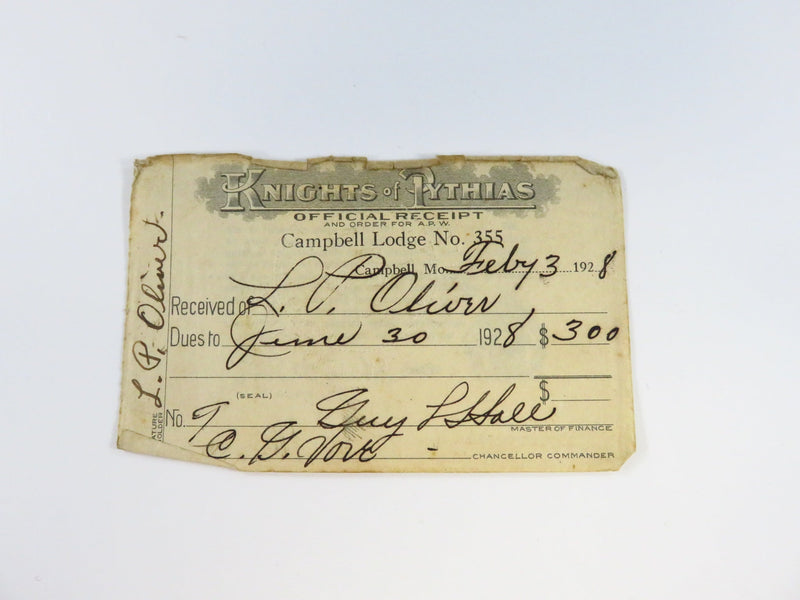 KNIGHTS of PYTHIAS
OFFICIAL RECEIPT
AND ORDER FOR A.P.W.
Campbell Lodge No. 355
Campbell Mo. Feby 3 1928
Received of L. P. Oliver
Dues to June 30 1928 $ 300
$
(SEAL)
No. 9 Guy Hall
MASTER OF FINANCE
C. G.
CHANCELLOR COMMANDER
L. P. Oliver